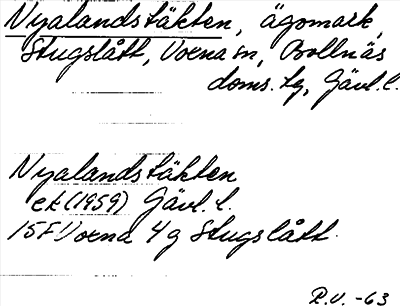 Nyalandstäkten, ägomark,
Stugslått, Voxna sn, Bollnäs
doms. tg, Gävl. l.
Nyalandstäkten
ek (1959) Gävl. l.
15F Voxna 4 g Stugslått.
R.U. -63